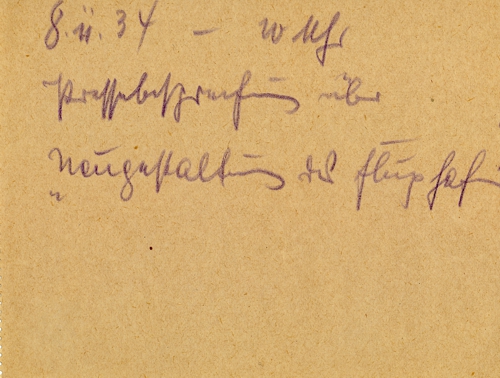 8. II. 34 – 10 Uhr
Pressebesprechung über
"Neugestaltung des Flughafen